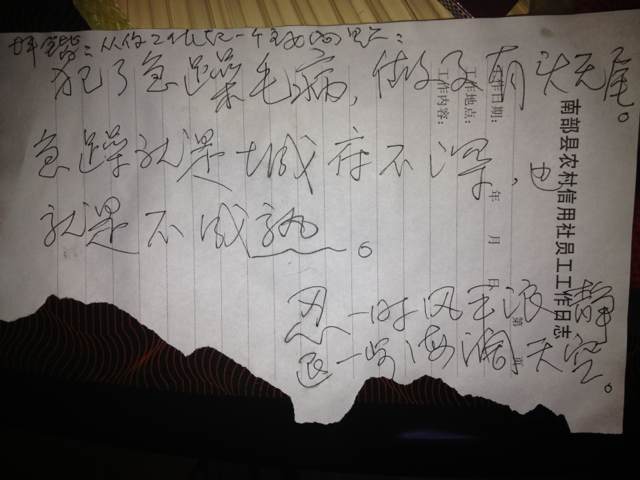 从你工作一个
犯了急躁毛病，做事有头无尾。
急躁就是城府不深，也
就是不成熟。
忍一时风平浪静
退一步海阔天空。
南部县农村信用社员工工作日志
工作日期： 年 月 日 第 页
工作地点：
工作内容：